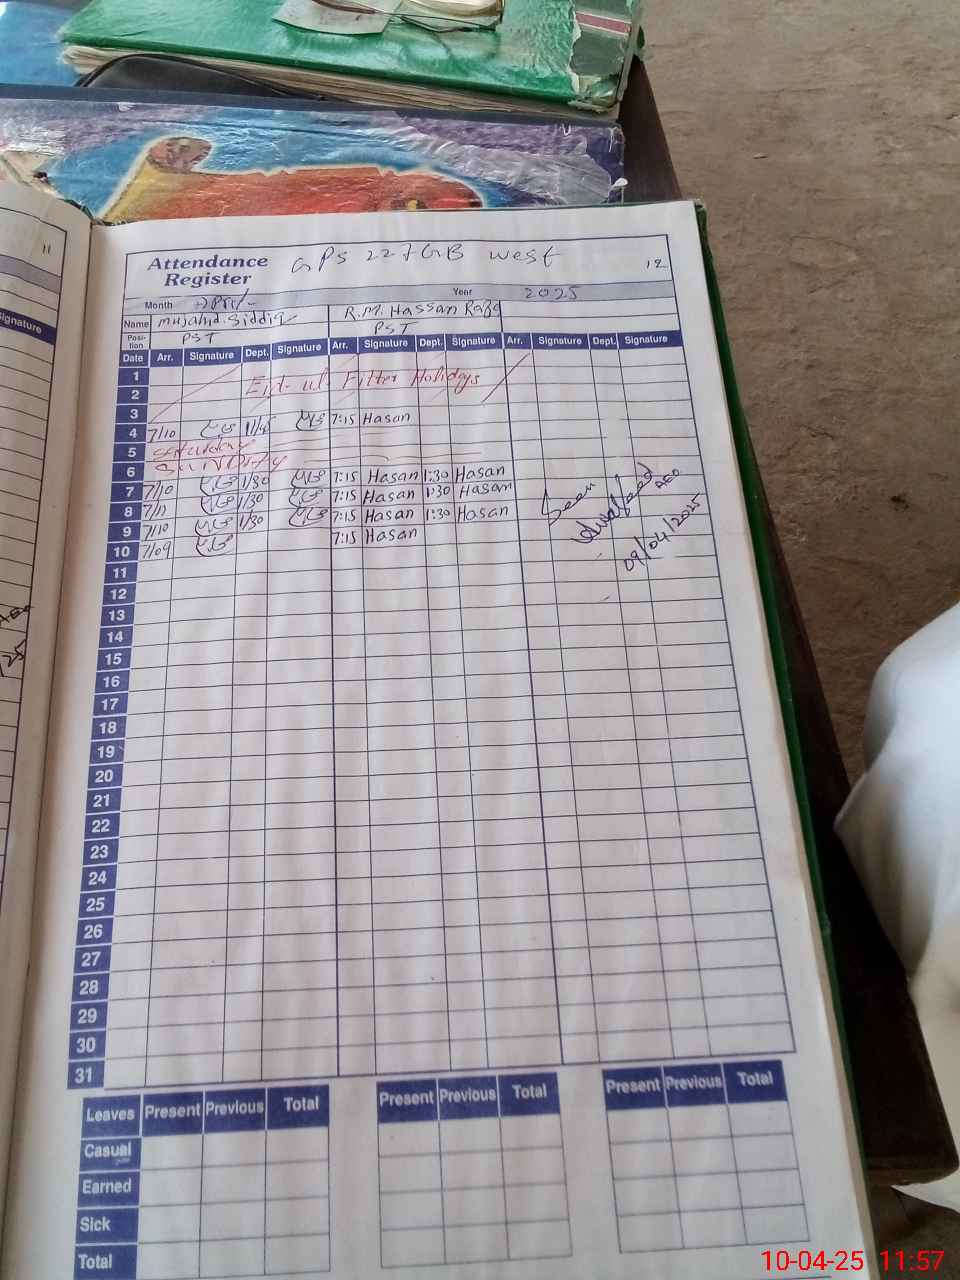 11
Signature
Attendance Register
GPS 227GB west
12
Month April
Year 2025
Name Mujahid Siddiq R.M. Hassan Raza
Position PST PST
Date Arr. Signature Dept. Signature Arr. Signature Dept. Signature Arr. Signature Dept. Signature
1
2 Eid-ul Fitter Holidays
3
4 7/10 11/30 7:15 Hasan
5 Saturday
6 SUNDAY
7 7/10 1/30 7:15 Hasan 1:30 Hasan
8 7/11 1/30 7:15 Hasan 1:30 Hasan
9 7/10 1/30 7:15 Hasan 1:30 Hasan
10 7/09 7:15 Hasan
Seen
AEO
09/04/2025
11
12
13
14
15
16
17
18
19
20
21
22
23
24
25
26
27
28
29
30
31
Leaves Present Previous Total Present Previous Total Present Previous Total
Casual
Earned
Sick
Total
10-04-25 11:57